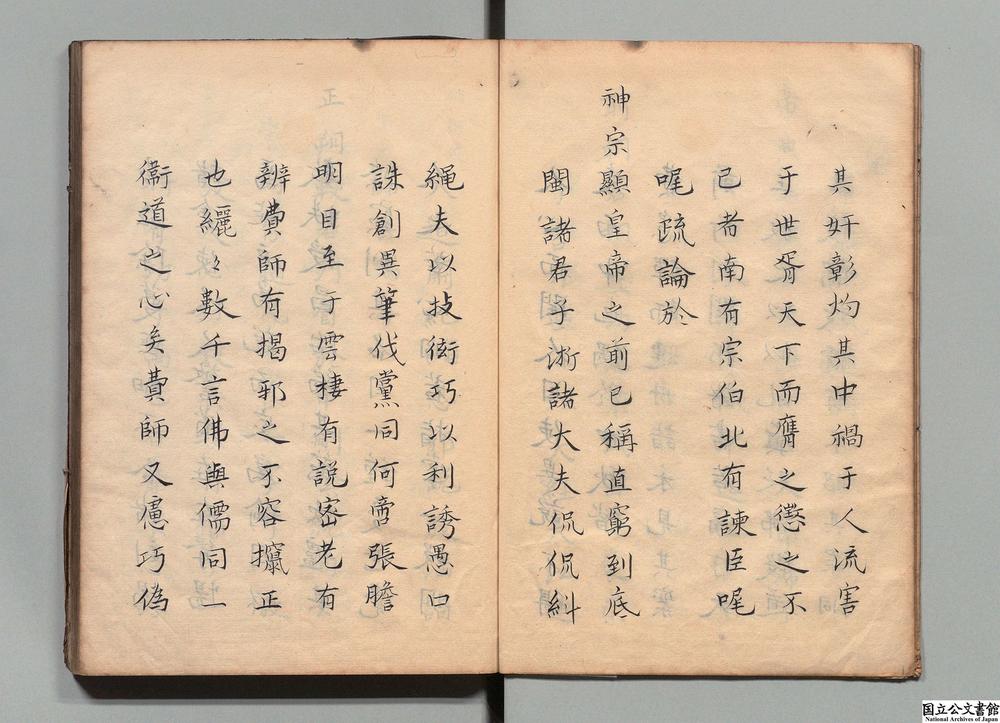 其奸彰灼其中禍于人流害
于世胥天下而膺之懲之不
已者南有宗伯北有諫臣喔
喔疏論於
神宗顯皇帝之前已稱直窮到底
閩諸君子浙諸大夫侃侃糾
繩夫以技術巧以利誘愚口
誅創異筆伐黨同何啻張膽
明目至于雲棲有説密老有
辨費師有揭邪之不容攛正
也纚々數千言佛與儒同一
衞道之心矣費師又慮巧偽
国立公文書館
National Archives of Japan